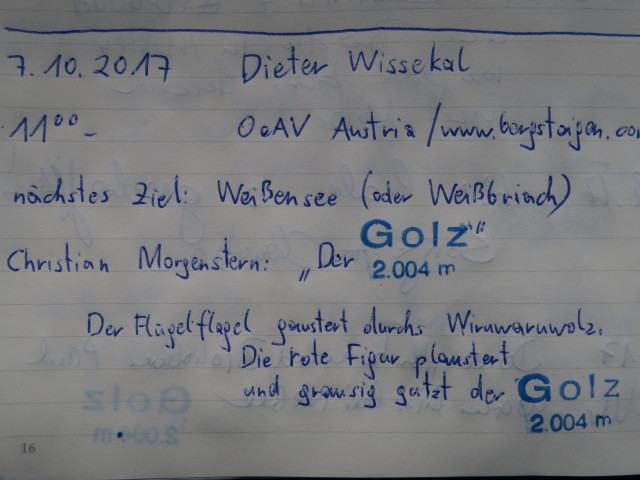 7.10.2017 Dieter Wissekal
11⁰⁰- OeAV Austria /www.bergsteigen.com
nächstes Ziel: Weißensee (oder Weißbriach)
Christian Morgenstern: „Der Golz“
2.004 m
Der Flügelflagel gaustert durchs Wiruwaruwolz.
Die rote Figur plaustert
und grausig gutzt der Golz
2.004 m
16